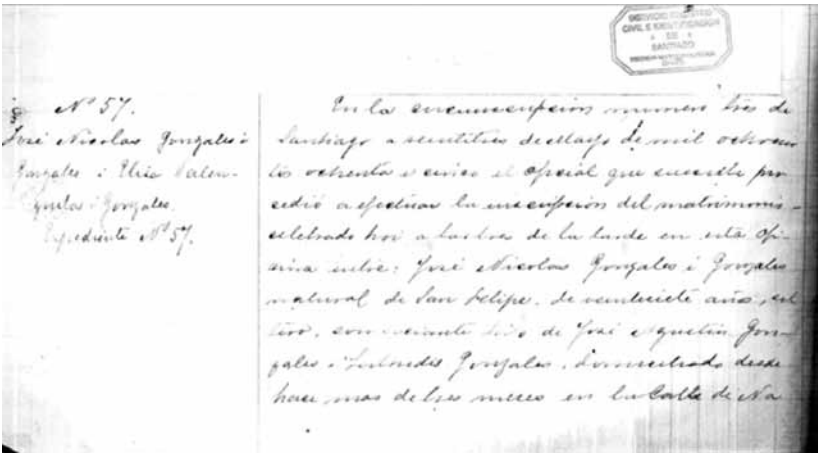 SERVICIO REGISTRO
CIVIL E IDENTIFICACION
DE
SANTIAGO
Nº 57.
José Nicolas Gonzales i
Gonzales i Elisa Valen-
zuela i Gonzales.
Expediente Nº 57.
En la circunscripcion numero tres de
Santiago a veintitres de Mayo de mil ochocien
tos ochenta i cinco el oficial que suscribe pro
cedió a efectuar la inscripcion del matrimonio
celebrado hoi a las tres de la tarde en esta ofi-
cina entre: José Nicolas Gonzales i Gonzales
natural de San Felipe, de veintisiete años, sol
tero, comerciante hijo de José Agustin Gon-
zales i Gonzales, domiciliado desde
hace mas de tres meses en la Calle de Na